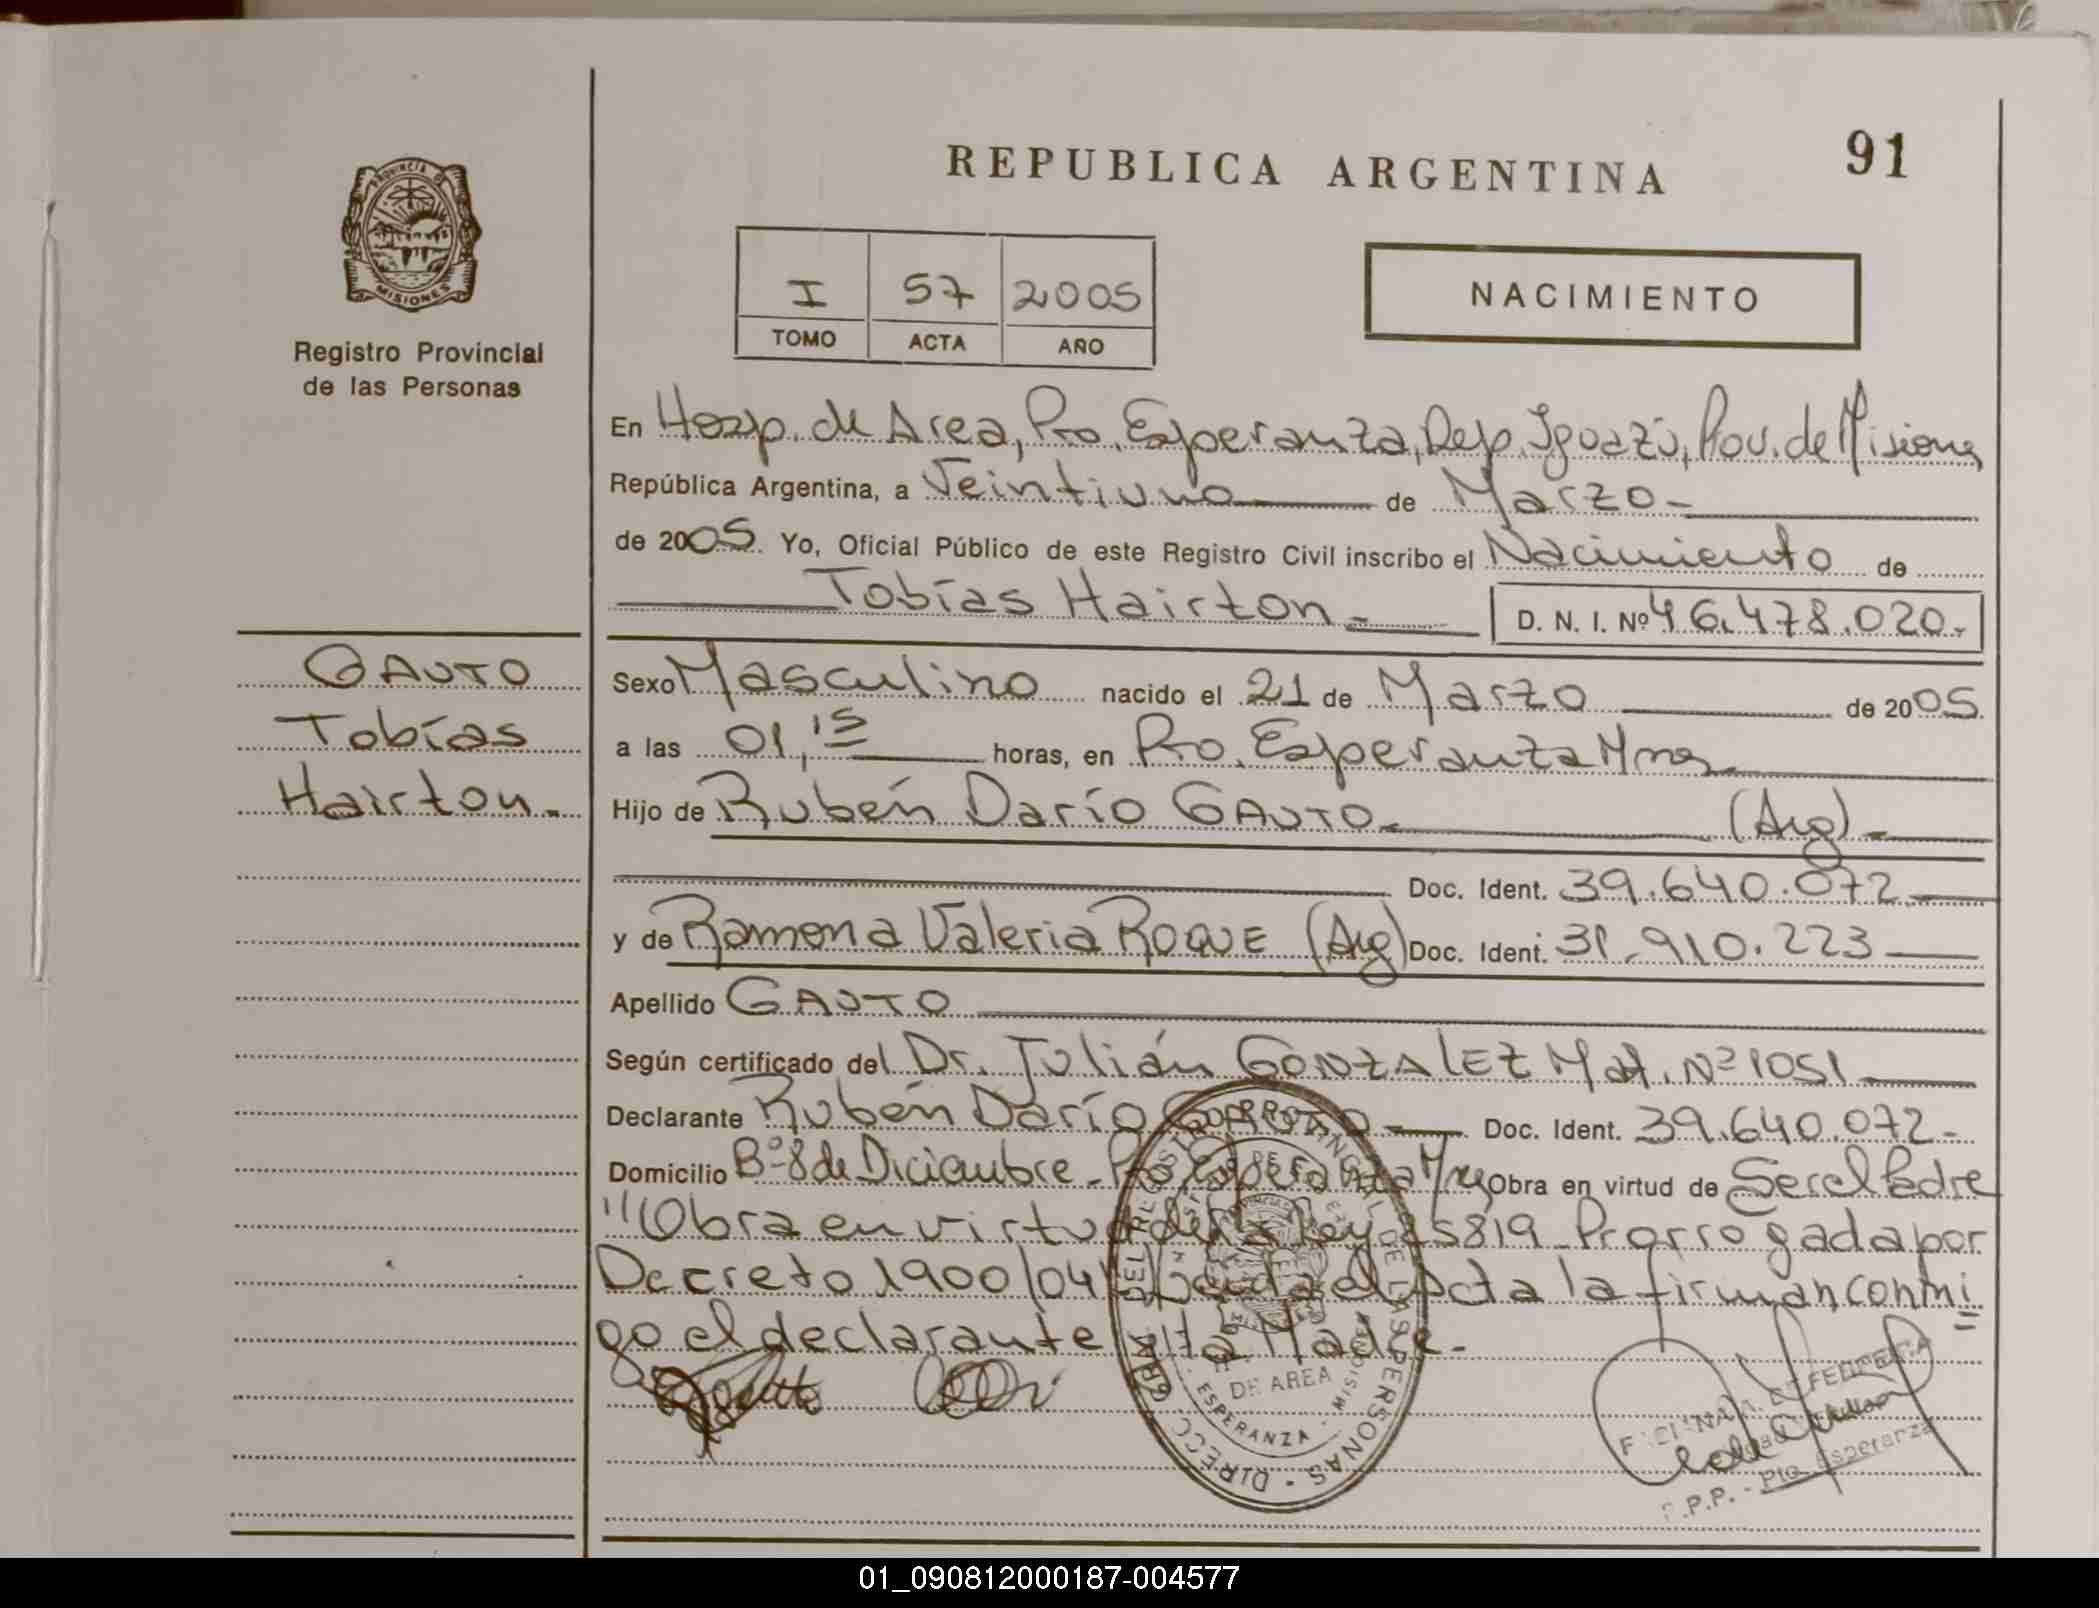 REPUBLICA ARGENTINA
91
PROVINCIA D
MISIONES
Registro Provincial
de las Personas
I 57 2005
TOMO ACTA AÑO
NACIMIENTO
En Hosp. de Area, Pto. Esperanza, Dep. Iguazú, Prov. de Misiones
República Argentina, a Veintiuno de Marzo
de 2005 Yo, Oficial Público de este Registro Civil inscribo el Nacimiento de
Tobías Hairton.
D. N. I. Nº 46.478.020.-
GAUTO
Tobías
Hairton.
Sexo Masculino nacido el 21 de Marzo de 2005
a las 01,15 horas, en Pto. Esperanza Mnes
Hijo de Rubén Darío GAUTO (Arg)
Doc. Ident. 39.640.072
y de Ramona Valeria ROQUE (Arg) Doc. Ident. 31.910.223
Apellido GAUTO
Según certificado del Dr. Julián GONZALEZ Mat. Nº 1051
Declarante Rubén Darío GAUTO Doc. Ident. 39.640.072-
Domicilio Bº 8 de Diciembre - Pto Esperanza Obra en virtud de Ser el Padre
"Obra en virtud de la Ley 25819 Prorrogada por
Decreto 1900/04 Leida el Acta la firman conmi
go el declarante y la Madre.
DE AREA
ESPERANZA - MISIONES
R.P.P. - Pto. Esperanza
01_090812000187-004577